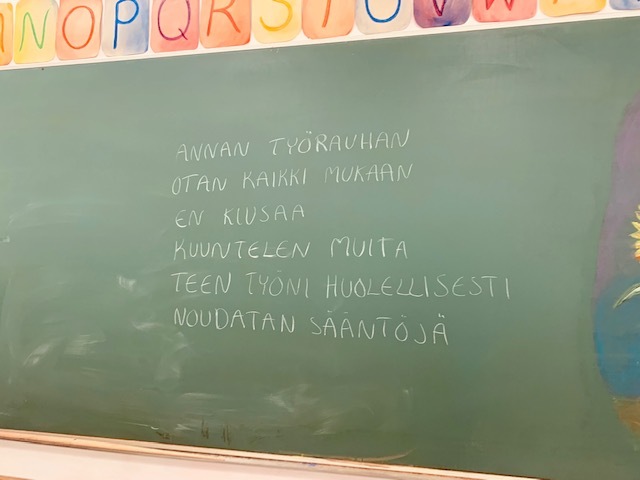 N O P Q R S T U V W
ANNAN TYÖRAUHAN
OTAN KAIKKI MUKAAN
EN KIUSAA
KUUNTELEN MUITA
TEEN TYÖNI HUOLELLISESTI
NOUDATAN SÄÄNTÖJÄ